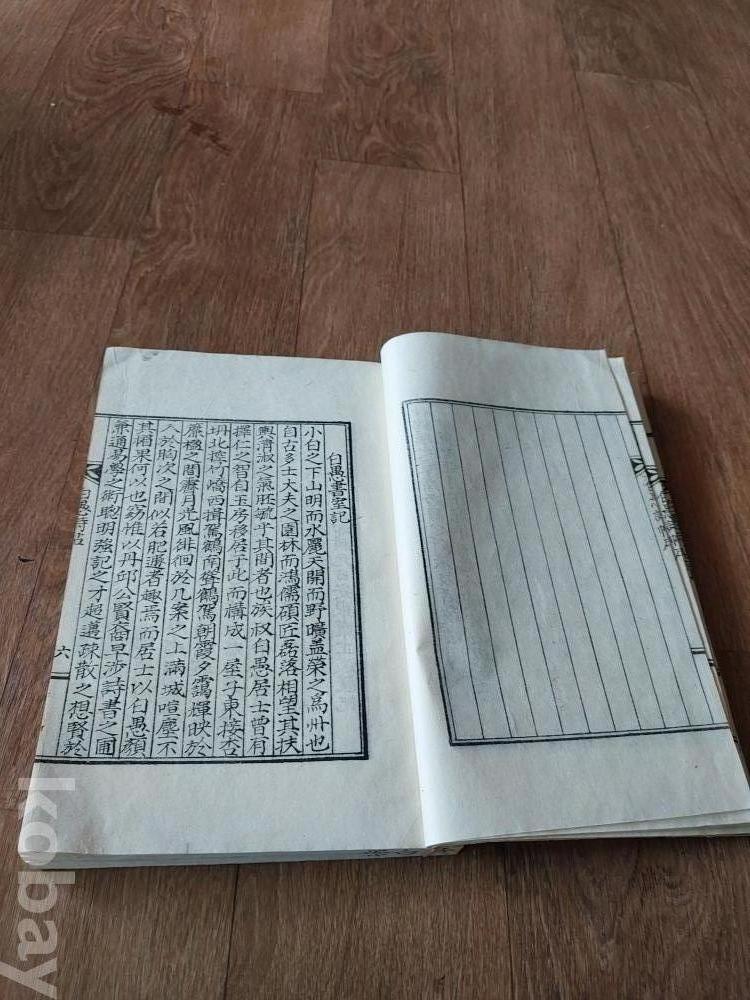 白愚書室記
小白之下山明而水麗天開而野曠盖榮之爲州也
自古多士大夫之園林而鴻儒碩匠磊落相望其扶
輿淸淑之氣胚毓乎其間者也族叔白愚居士曾有
擇仁之智自玉房移居于此而構成一屋子東接杏
坍北撐竹嶠西揖駕鶴南聳鶴駕朝霞夕靄輝映於
簾楹之間霽月光風徘徊於几案之上滿城喧塵不
入於胸次之間似若肥遯者趣焉而居士以白愚顔
其楣果何以也窃惟以丹邱公賢裔早涉詩書之圃
兼通易學之術聰明强記之才超邁疎散之想賢於
六
kobay